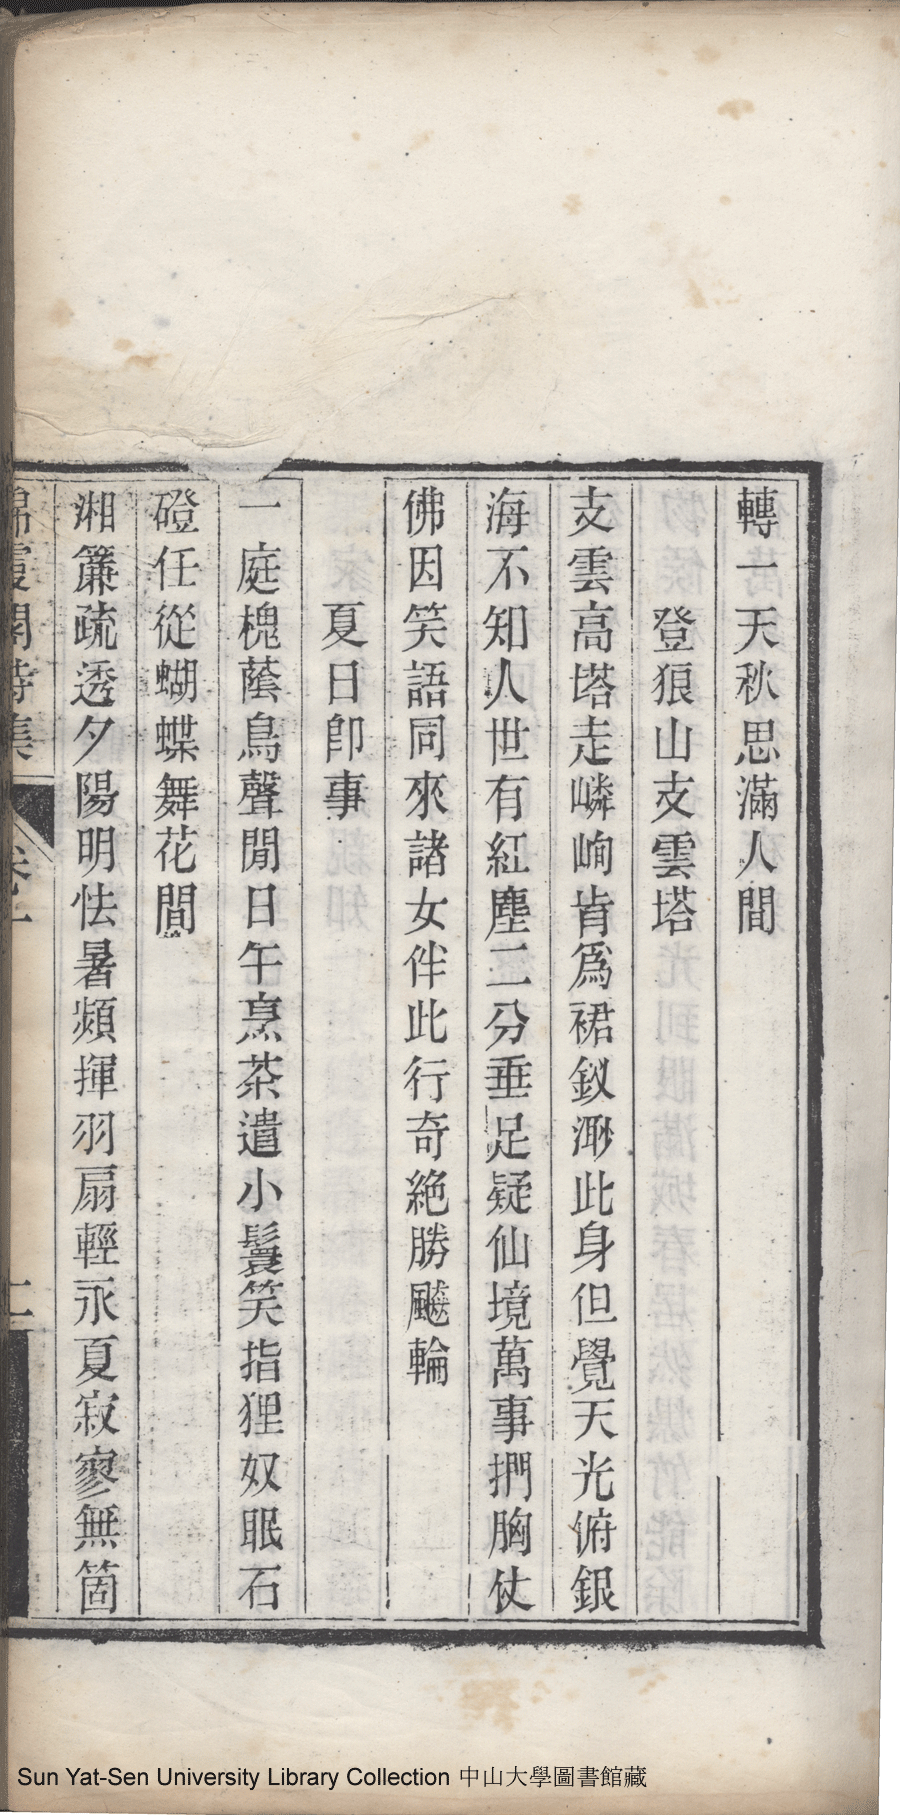 轉一天秋思滿人間
登狼山支雲塔
支雲高塔走嶙峋肯爲裙釵溷此身但覺天光俯銀
海不知人世有紅塵二分垂足疑仙境萬事捫胸仗
佛因笑語同來諸女伴此行奇絶勝飈輪
夏日卽事
一庭槐蔭鳥聲閒日午烹茶遣小鬟笑指狸奴眠石
磴任從蝴蝶舞花間
湘簾疏透夕陽明怯暑頻揮羽扇輕永夏寂寥無箇
錦霞閣詩集 卷一
Sun Yat-Sen University Library Collection 中山大學圖書館藏